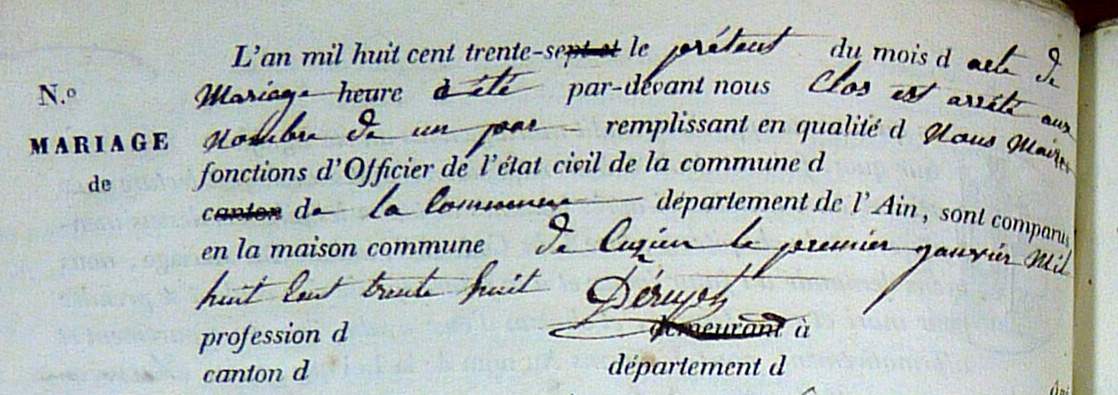 L'an mil huit cent trente-sept et le présent du mois d acte de
N.º Mariage heure d été par-devant nous Clos est arrêté aux
MARIAGE nombre de un par remplissant en qualité d Nous Maire
de fonctions d'Officier de l'état civil de la commune d
canton de la Commune département de l'Ain, sont comparus
en la maison commune de Cuzieu le premier janvier Mil
huit cent trente huit
profession d demeurant à
canton d département d